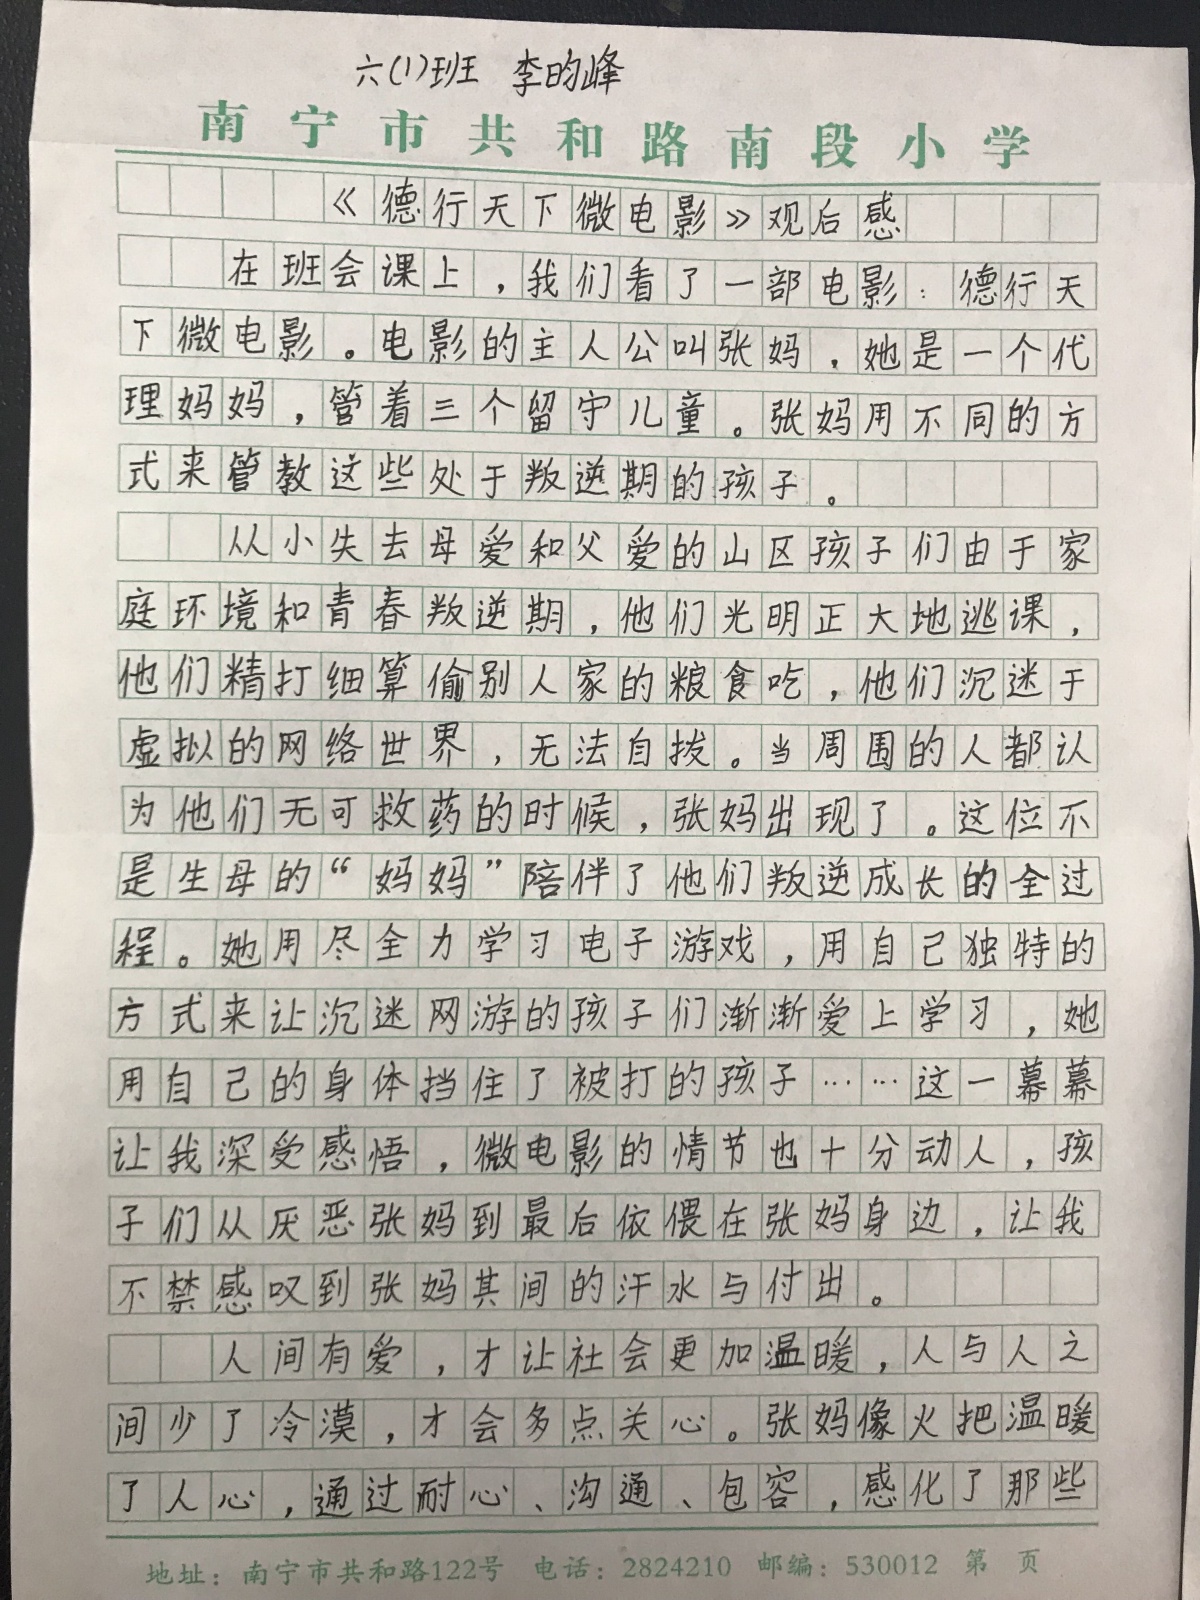 六(1)班 李昀峰
南宁市共和路南段小学
《德行天下微电影》观后感
在班会课上，我们看了一部电影：德行天
下微电影。电影的主人公叫张妈，她是一个代
理妈妈，管着三个留守儿童。张妈用不同的方
式来管教这些处于叛逆期的孩子。
从小失去母爱和父爱的山区孩子们由于家
庭环境和青春叛逆期，他们光明正大地逃课，
他们精打细算偷别人家的粮食吃，他们沉迷于
虚拟的网络世界，无法自拔。当周围的人都认
为他们无可救药的时候，张妈出现了。这位不
是生母的“妈妈”陪伴了他们叛逆成长的全过
程。她用尽全力学习电子游戏，用自己独特的
方式来让沉迷网游的孩子们渐渐爱上学习，她
用自己的身体挡住了被打的孩子……这一幕幕
让我深受感悟，微电影的情节也十分动人，孩
子们从厌恶张妈到最后依偎在张妈身边，让我
不禁感叹到张妈其间的汗水与付出。
人间有爱，才让社会更加温暖，人与人之
间少了冷漠，才会多点关心。张妈像火把温暖
了人心，通过耐心、沟通、包容，感化了那些
地址：南宁市共和路122号 电话：2824210 邮编：530012 第 页